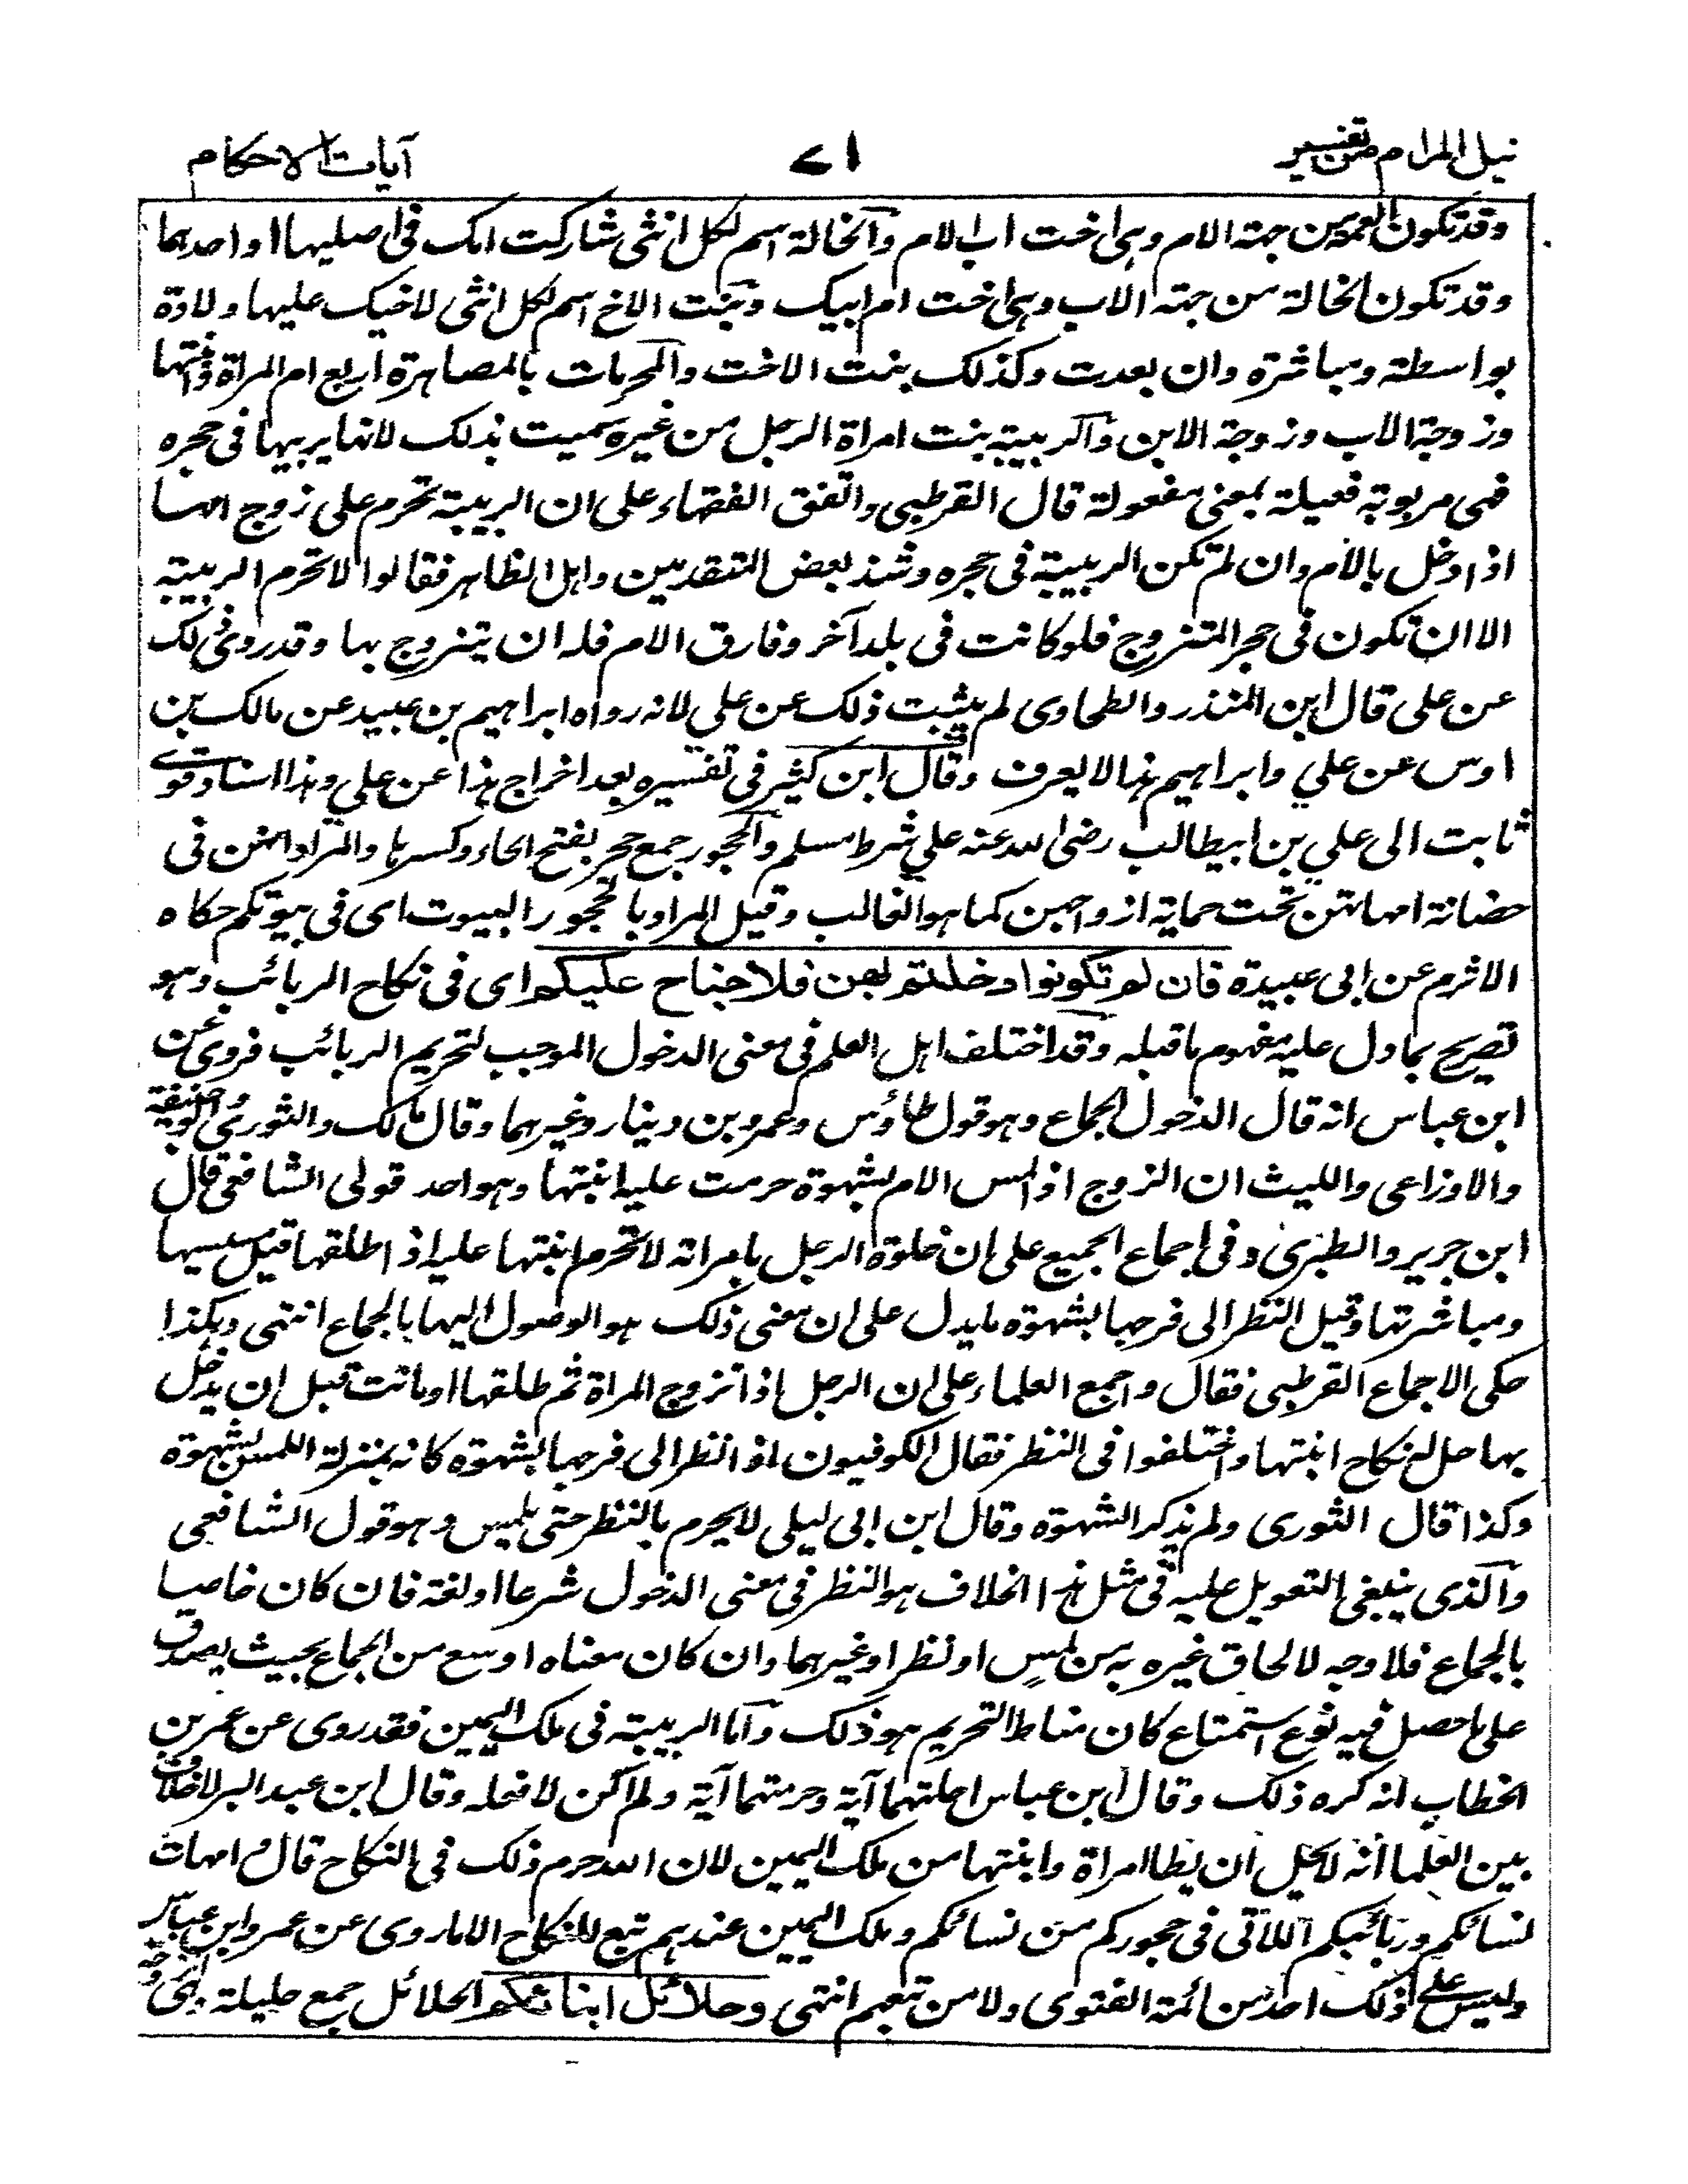 نيل المرام من تفسير
٧١
آيات الاحكام
وقد تكون العمة من جهة الام وهي اخت اب الام والخالة اسم لكل انثى شاركت امك في اصليها او احدهما
وقد تكون الخالة من جهة الاب وهي اخت ام ابيك وبنت الاخ اسم لكل انثى لاخيك عليها ولادة
بواسطة ومباشرة وان بعدت وكذلك بنت الاخت والمحرمات بالمصاهرة اربع ام المراة وابنتها
وزوجة الاب وزوجة الابن والربيبة بنت امراة الرجل من غيره سميت بذلك لانها يربيها في حجره
فهي مربوبة فعيلة بمعنى مفعولة قال القرطبي واتفق الفقهاء على ان الربيبة تحرم على زوج امها
اذا دخل بالام وان لم تكن الربيبة في حجره وشذ بعض المتقدمين واهل الظاهر فقالوا لا تحرم الربيبة
الا ان تكون في حجر المتزوج فلو كانت في بلد آخر وفارق الام فله ان يتزوج بها وقد روي ذلك
عن علي قال ابن المنذر والطحاوي لم يثبت ذلك عن علي لانه رواه ابراهيم بن عبيد عن مالك بن
اوس عن علي وابراهيم هذا لا يعرف وقال ابن كثير في تفسيره بعد اخراج هذا عن علي وهذا اسناد قوي
ثابت الى علي بن ابيطالب رضي الله عنه علي شرط مسلم والحجور جمع حجر بفتح الحاء وكسرها والمراد انهن في
حضانة امهاتهن تحت حماية ازواجهن كما هو الغالب وقيل المراد بالحجور البيوت اى في بيوتكم حكاه
الاثرم عن ابي عبيدة فان لم تكونوا دخلتم بهن فلا جناح عليكم اى في نكاح الربائب وهو
تصريح بما دل عليه مفهوم ما قبله وقد اختلف اهل العلم في معنى الدخول الموجب لتحريم الربائب فروي عن
ابن عباس انه قال الدخول الجماع وهو قول طاؤس وعمرو بن دينار وغيرهما وقال مالك والثوري وابو حنيفة
والاوزاعي والليث ان الزوج اذا لمس الام لشهوة حرمت عليه ابنتها وهو احد قولي الشافعي قال
ابن جرير والطبري وفي اجماع الجميع على ان خلوة الرجل بامراته لا تحرم ابنتها عليه اذا طلقها قبل مسيسها
ومباشرتها وقبل النظر الى فرجها بشهوة ما يدل على ان معنى ذلك هو الوصول اليها بالجماع انتهى وهكذا
حكى الاجماع القرطبي فقال واجمع العلماء على ان الرجل اذا تزوج المراة ثم طلقها او ماتت قبل ان يدخل
بها حل له نكاح ابنتها واختلفوا في النظر فقال الكوفيون اذا نظر الى فرجها بشهوة كانه بمنزلة اللمس لشهوة
وكذا قال الثوري ولم يذكر الشهوة وقال ابن ابي ليلى لا يحرم بالنظر حتى يلمس وهو قول الشافعي
والذي ينبغي التعويل عليه في مثل هذا الخلاف هو النظر في معنى الدخول شرعا او لغة فان كان خاصا
بالجماع فلا وجه لالحاق غيره به من لمس او نظر او غيرهما وان كان معناه اوسع من الجماع بحيث يصدق
على ما حصل فيه نوع استمتاع كان مناط التحريم هو ذلك واما الربيبة في ملك اليمين فقد روى عن عمر بن
الخطاب انه كره ذلك وقال ابن عباس احلتهما آية وحرمتهما آية ولم اكن لافعله وقال ابن عبد البر لا خلاف
بين العلما انه لا يحل ان يطا امراة وابنتها من ملك اليمين لان الله حرم ذلك في النكاح قال وامهات
نسائكم وربائبكم اللاتي في حجوركم من نسائكم وملك اليمين عندهم تبع للنكاح الا ما روى عن عمر وابن عباس
وليس على ذلك احد من ائمة الفتوى ولا من تبعهم انتهى وحلائل ابنائكم الحلائل جمع حليلة وهي